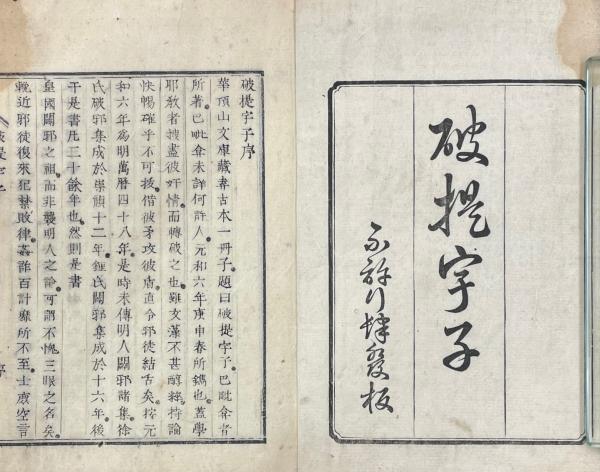 破提宇子
不許肆發板
破提宇子序
華頂山文庫藏弆古本一冊子。題曰破提宇子。巴毗弇者
所著。巴毗弇未詳何許人。元和六年庚申春所鐫也。蓋學
耶教者。搜盡彼奸情。而轉破之也。雖文藻不甚醇粹。持論
快暢。確乎不可拔。借彼矛攻彼盾。直令邪徒結舌矣。按元
和六年。為明萬曆四十八年。是時未傳明人闢邪諸集。徐
氏破邪集成於崇禎十二年。鍾氏闢邪集成於十六年。後
于是書凡二十餘年也。然則是書
皇國闢邪之祖。而非襲明人之論。可謂不愧三眼之名矣。
輓近邪徒復來犯禁敗律。姦詐百計。靡所不至。士或空言